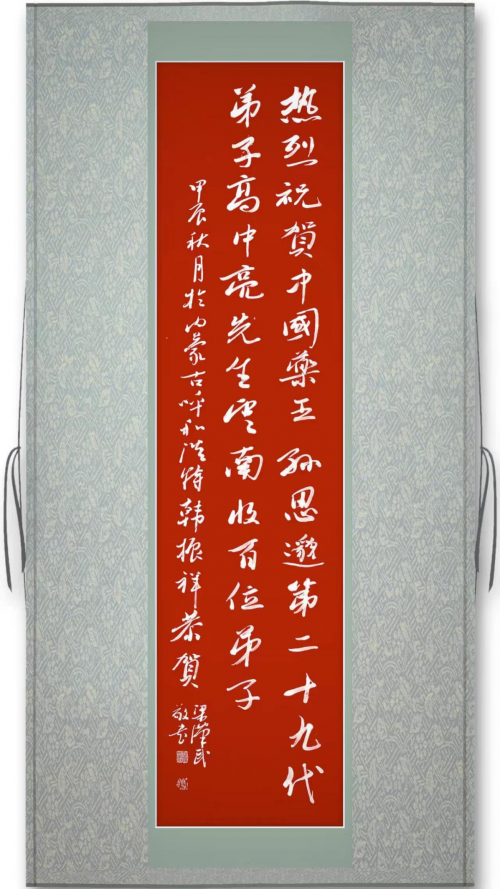 热烈祝贺中國藥王孙思邈第二十九代
弟子高中亮先生雲南收百位弟子
甲辰秋月於内蒙古呼和浩特韩振祥恭贺
梁漢民
敬書